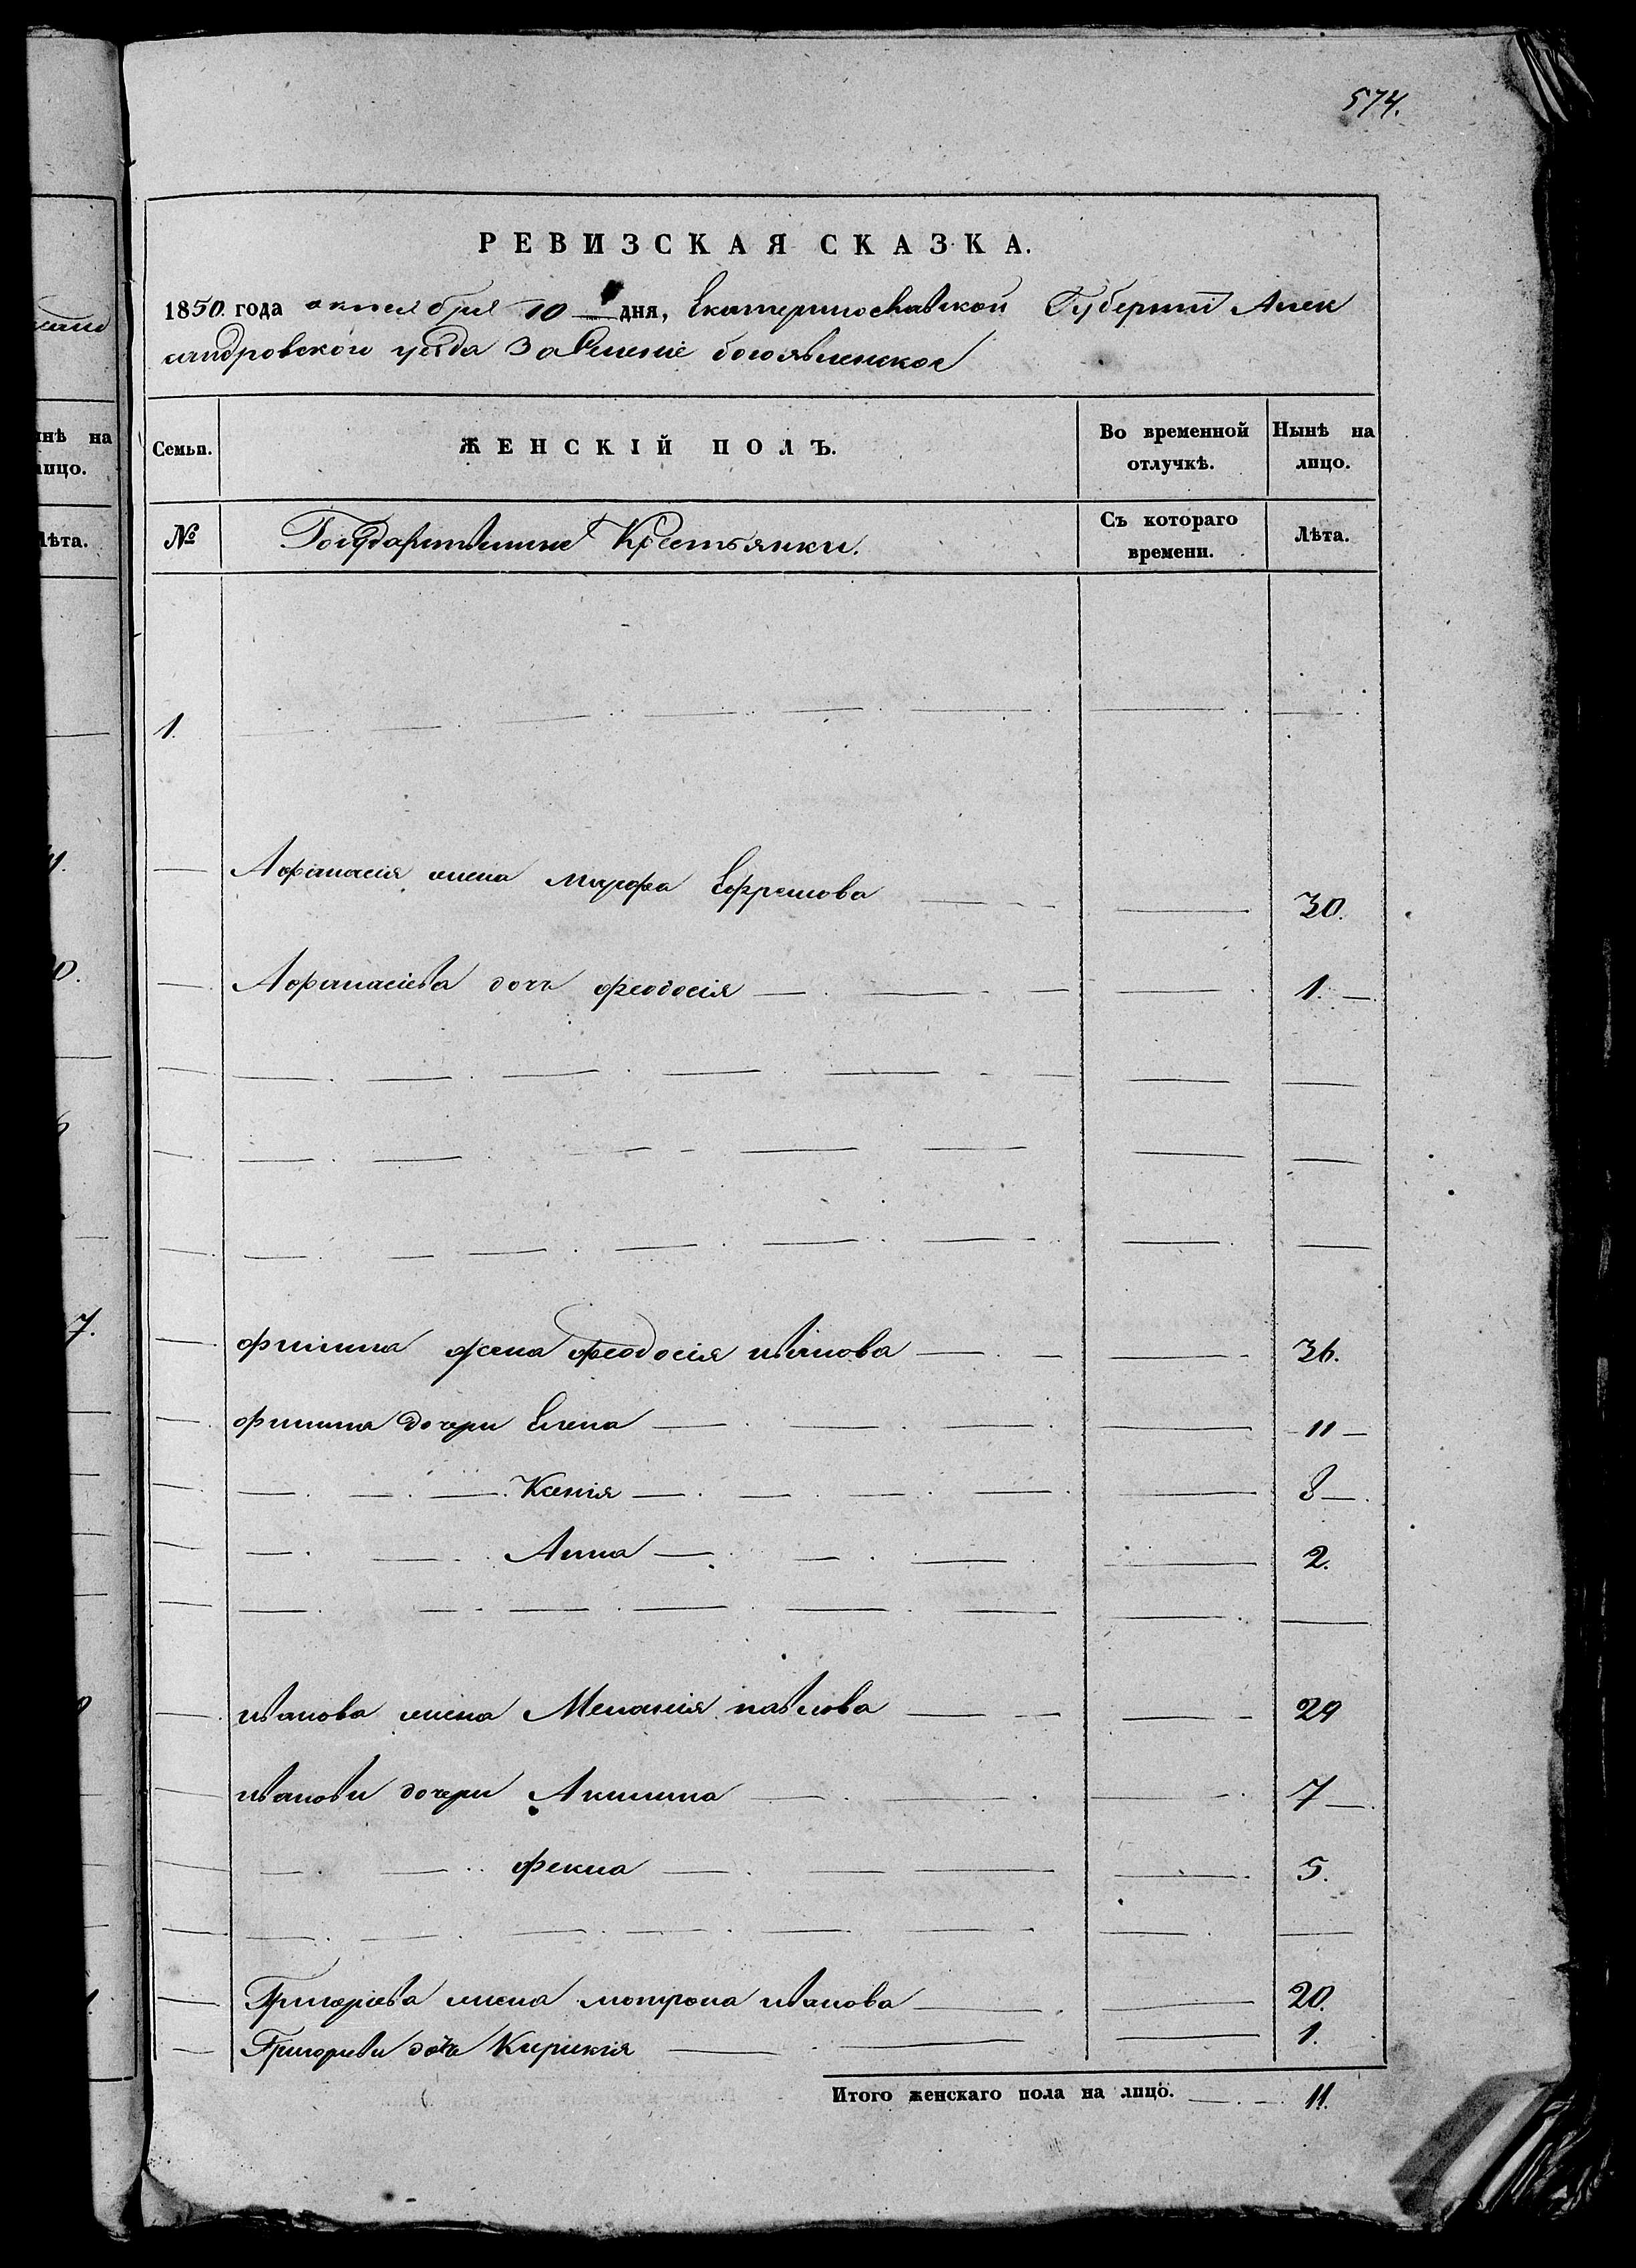 574.
РЕВИЗСКАЯ СКАЗКА.
1850 года октября 10 дня, Екатеринославской Губернии Алек
сандровского уезда Заведение богоявленское
Семьи. ЖЕНСКІЙ ПОЛЪ. Во временной отлучкѣ. Нынѣ на лицо.
№ Государственные Крестьянки. Съ котораго времени. Лѣта.
1.
Афанасія жена марфа Ефремова 30.
Афанасіева дочь феодосія 1.
филипа жена феодосія иванова 36.
филипа дочери Елена 11
Ксенія 8
Анна 2.
иванова жена Меланія павлова 29
иванови дочери Акилина 7
фекла 5.
Григорієва жена мотрона иванова 20.
Григориеви дочь Кирикія 1.
Итого женскаго пола на лицо. 11.
нѣ на
лицо.
лѣта.
7.